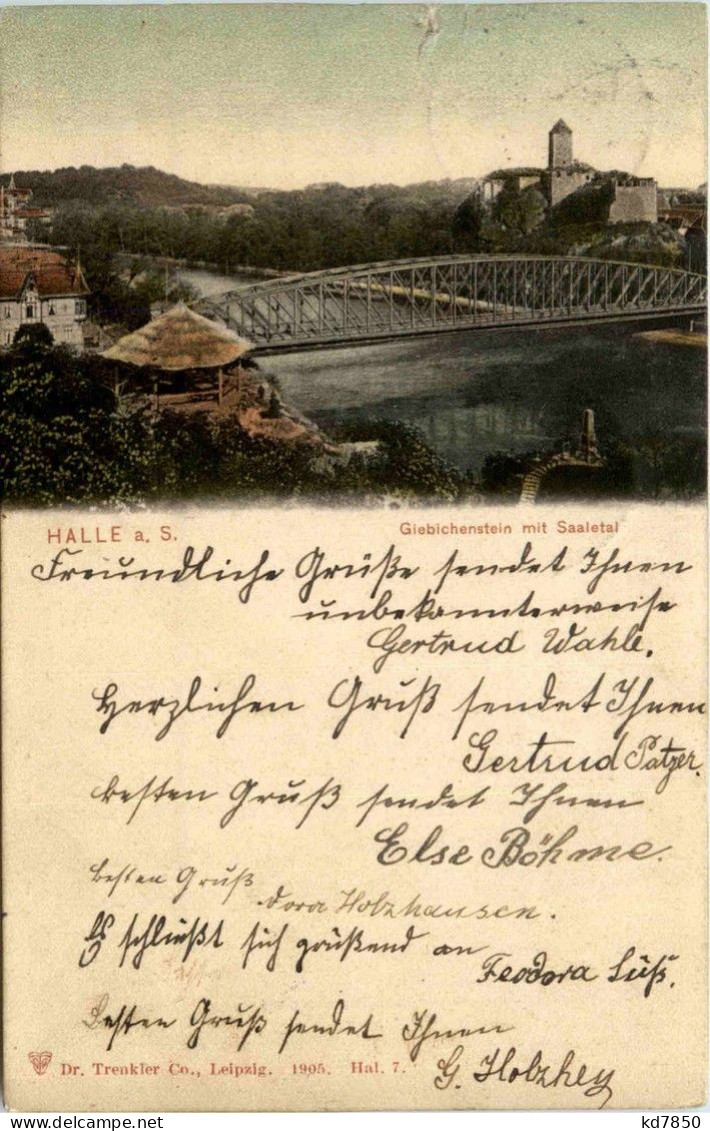 HALLE a. S.
Giebichenstein mit Saaletal
Freundliche Grüße sendet Ihnen
unbekannterweise
Gertrud Wahle.
Herzlichen Gruß sendet Ihnen
Gertrud Patzer.
besten Gruß sendet Ihnen
Else Böhme.
besten Gruß
Dora Holzhausen.
Es schließt sich grüßend an
Feodora Süß.
Besten Gruß sendet Ihnen
G. Holzhey
Dr. Trenkler Co., Leipzig. 1905. Hal. 7.
kd7850